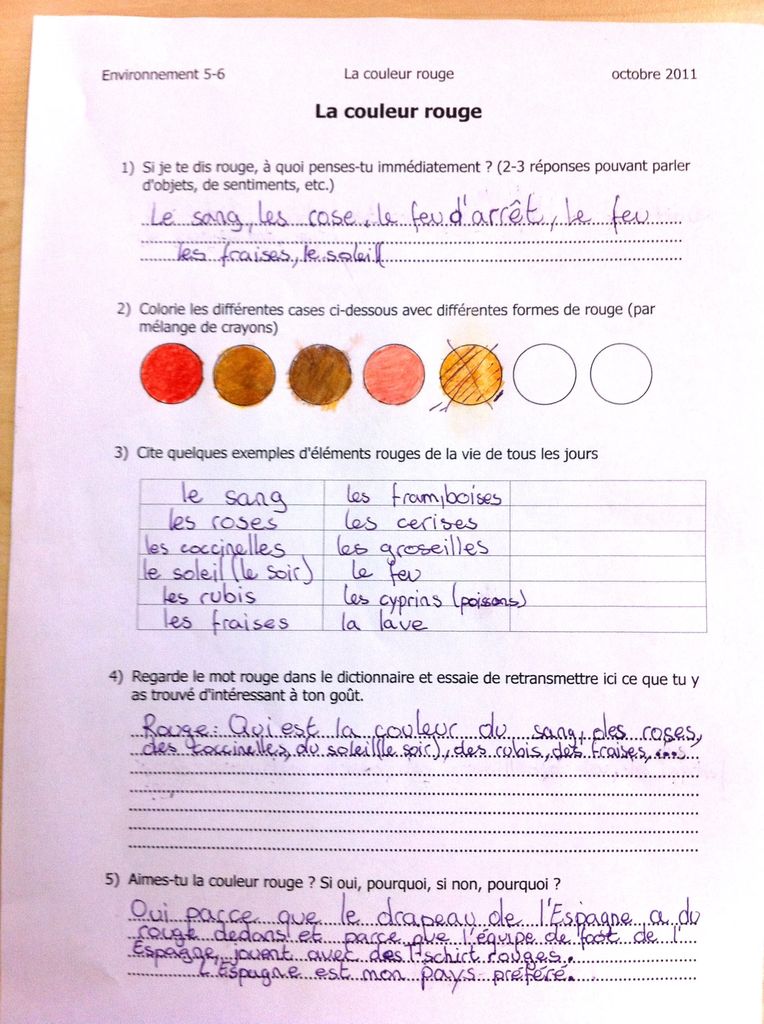 Environnement 5-6 La couleur rouge octobre 2011
La couleur rouge
1) Si je te dis rouge, à quoi penses-tu immédiatement ? (2-3 réponses pouvant parler
d'objets, de sentiments, etc.)
Le sang, les rose, le feu d'arrêt, le feu
les fraises, le soleil
2) Colorie les différentes cases ci-dessous avec différentes formes de rouge (par
mélange de crayons)
3) Cite quelques exemples d'éléments rouges de la vie de tous les jours
le sang les framboises
les roses les cerises
les coccinelles les groseilles
le soleil (le soir) le feu
les rubis les cyprins (poissons)
les fraises la lave
4) Regarde le mot rouge dans le dictionnaire et essaie de retransmettre ici ce que tu y
as trouvé d'intéressant à ton goût.
Rouge: Qui est la couleur du sang, des roses,
des coccinelles, du soleil (le soir), des rubis, des fraises, ....
5) Aimes-tu la couleur rouge ? Si oui, pourquoi, si non, pourquoi ?
Oui parce que le drapeau de l'Espagne a du
rouge dedans et parce que l'équipe de foot de l'
Espagne, jouent avec des T-schirt rouges.
L'Espagne est mon pays préféré.